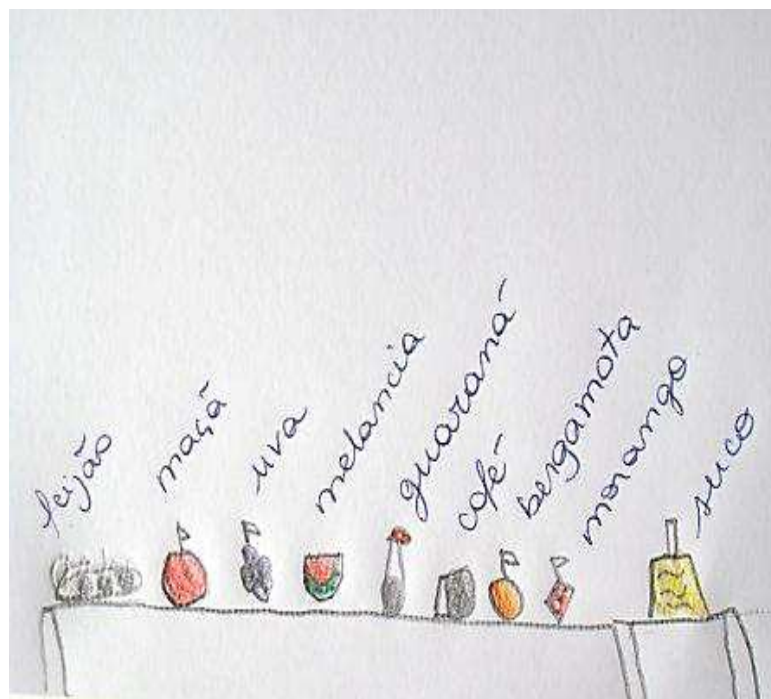 feijão
maçã
uva
melancia
guaraná
café
bergamota
morango
suco